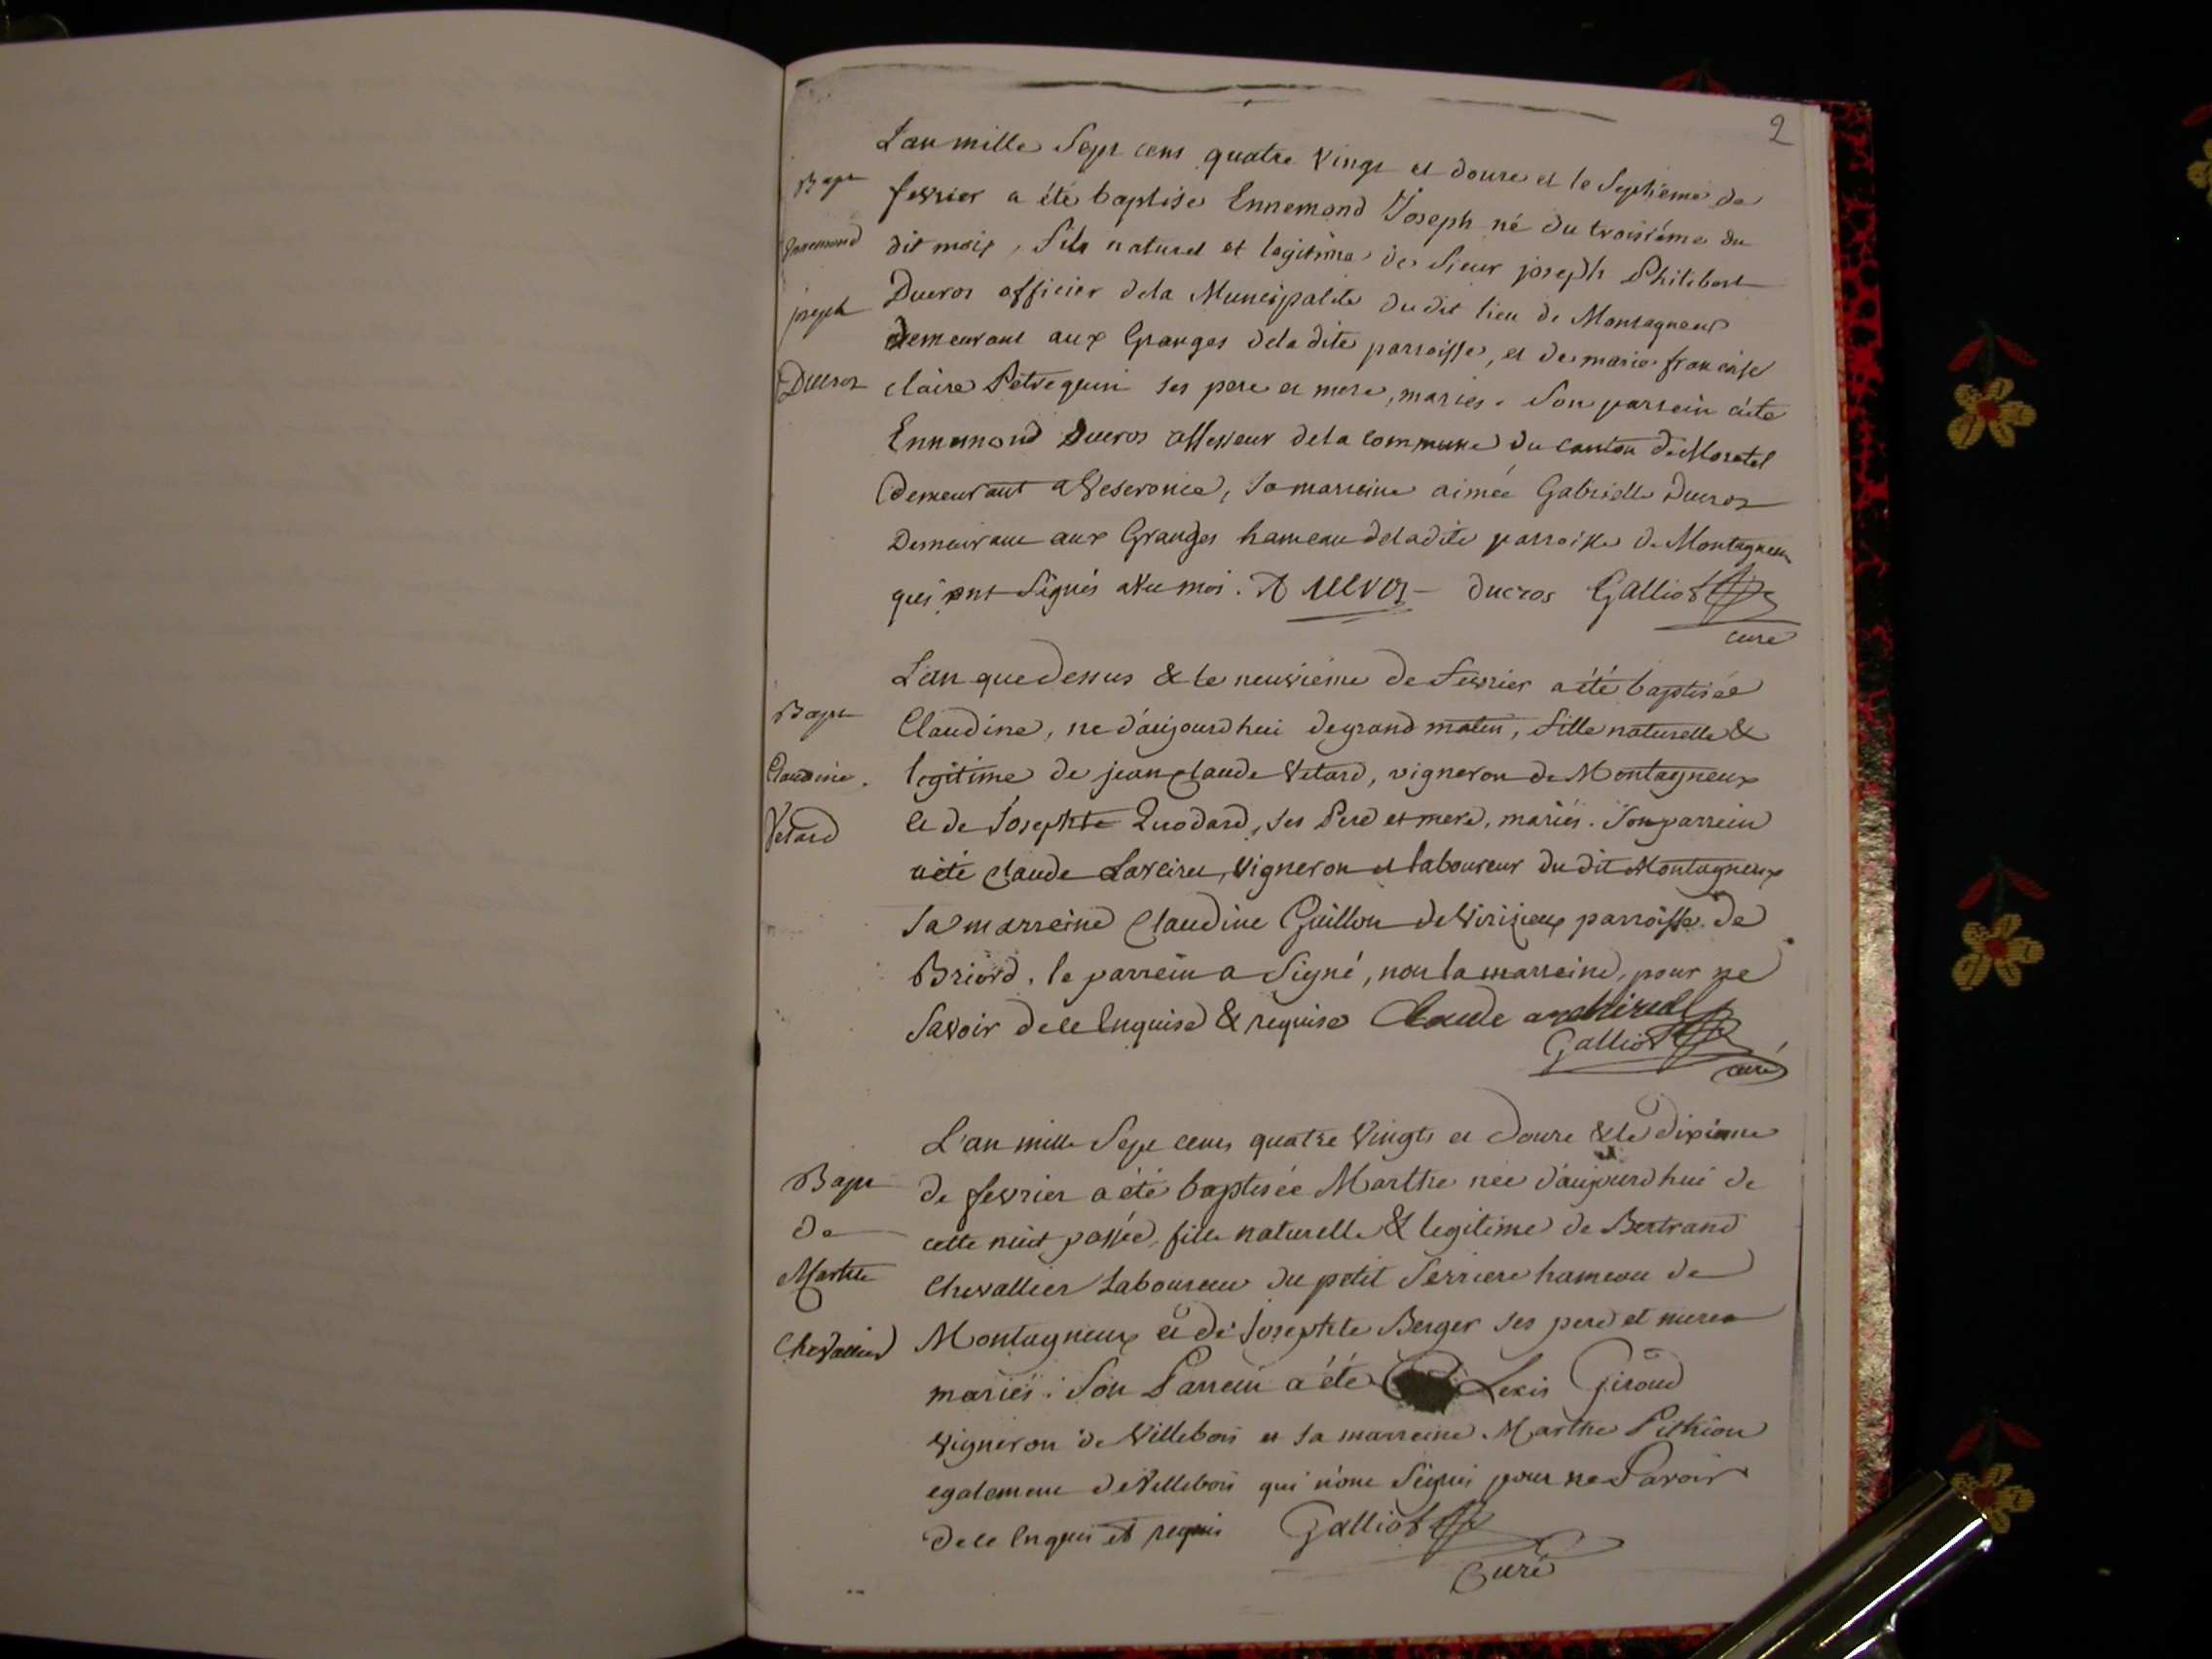 2
L'an mille Sept cens quatre vingt et douze et le Septième de
Bapt
fevrier a été baptisé Ennemond Joseph né du troisiéme du
Ennemond
dit mois, fils naturel et legitime de Sieur joseph Philibert
joseph
Ducros officier dela Municipalité dudit lieu de Montagneux
demeurant aux Granges dela dite parroisse, et de marie francoise
Ducros
claire Petrequin ses pere et mere, mariés. Son parrein a été
Ennemond Ducros assesseur dela commune du canton de Morestel
demeurant a Veseronce, sa marreine aimée Gabrielle Ducros
Demeurant aux Granges hameau deladite parroisse de Montagneux
qui ont Signés avec moi. Ducros Galliot
curé
L'an que dessus & le neuvieme de fevrier a été baptisée
Bapt
Claudine, ne d'aujourd'hui de grand matin, fille naturelle &
Claudine.
legitime de jean claude Vetard, vigneron de Montagneux
Vetard
et de Josephte Quodard, ses Pere et mere, mariés. Son parrein
a été claude Larciret, vigneron et laboureur du dit Montagneux
Sa marreine Claudine Guillon de Virizeux parroisse de
Briord. le parrein a Signé, non la marreine, pour ne
Savoir de ce Enquise & requise Claude
Galliot
curé
L'an mille Sept cens quatre vingts et douze & le dixieme
Bapt
de fevrier a été baptisée Marthe née d'aujourd'hui de
de
cette nuit passée, fille naturelle & legitime de Bertrand
Marthe
Chevallier Laboureur du petit Serriere hameau de
Chevallier
Montagneux et de Josephte Berger ses pere et mere
mariés. Son Parrein a été Lexis Giroud
vigneron de Villebois et sa marreine Marthe Pithiou
egalement de Villebois qui n'ont Signés pour ne Savoir
de ce Enquis et requis Galliot
Curé